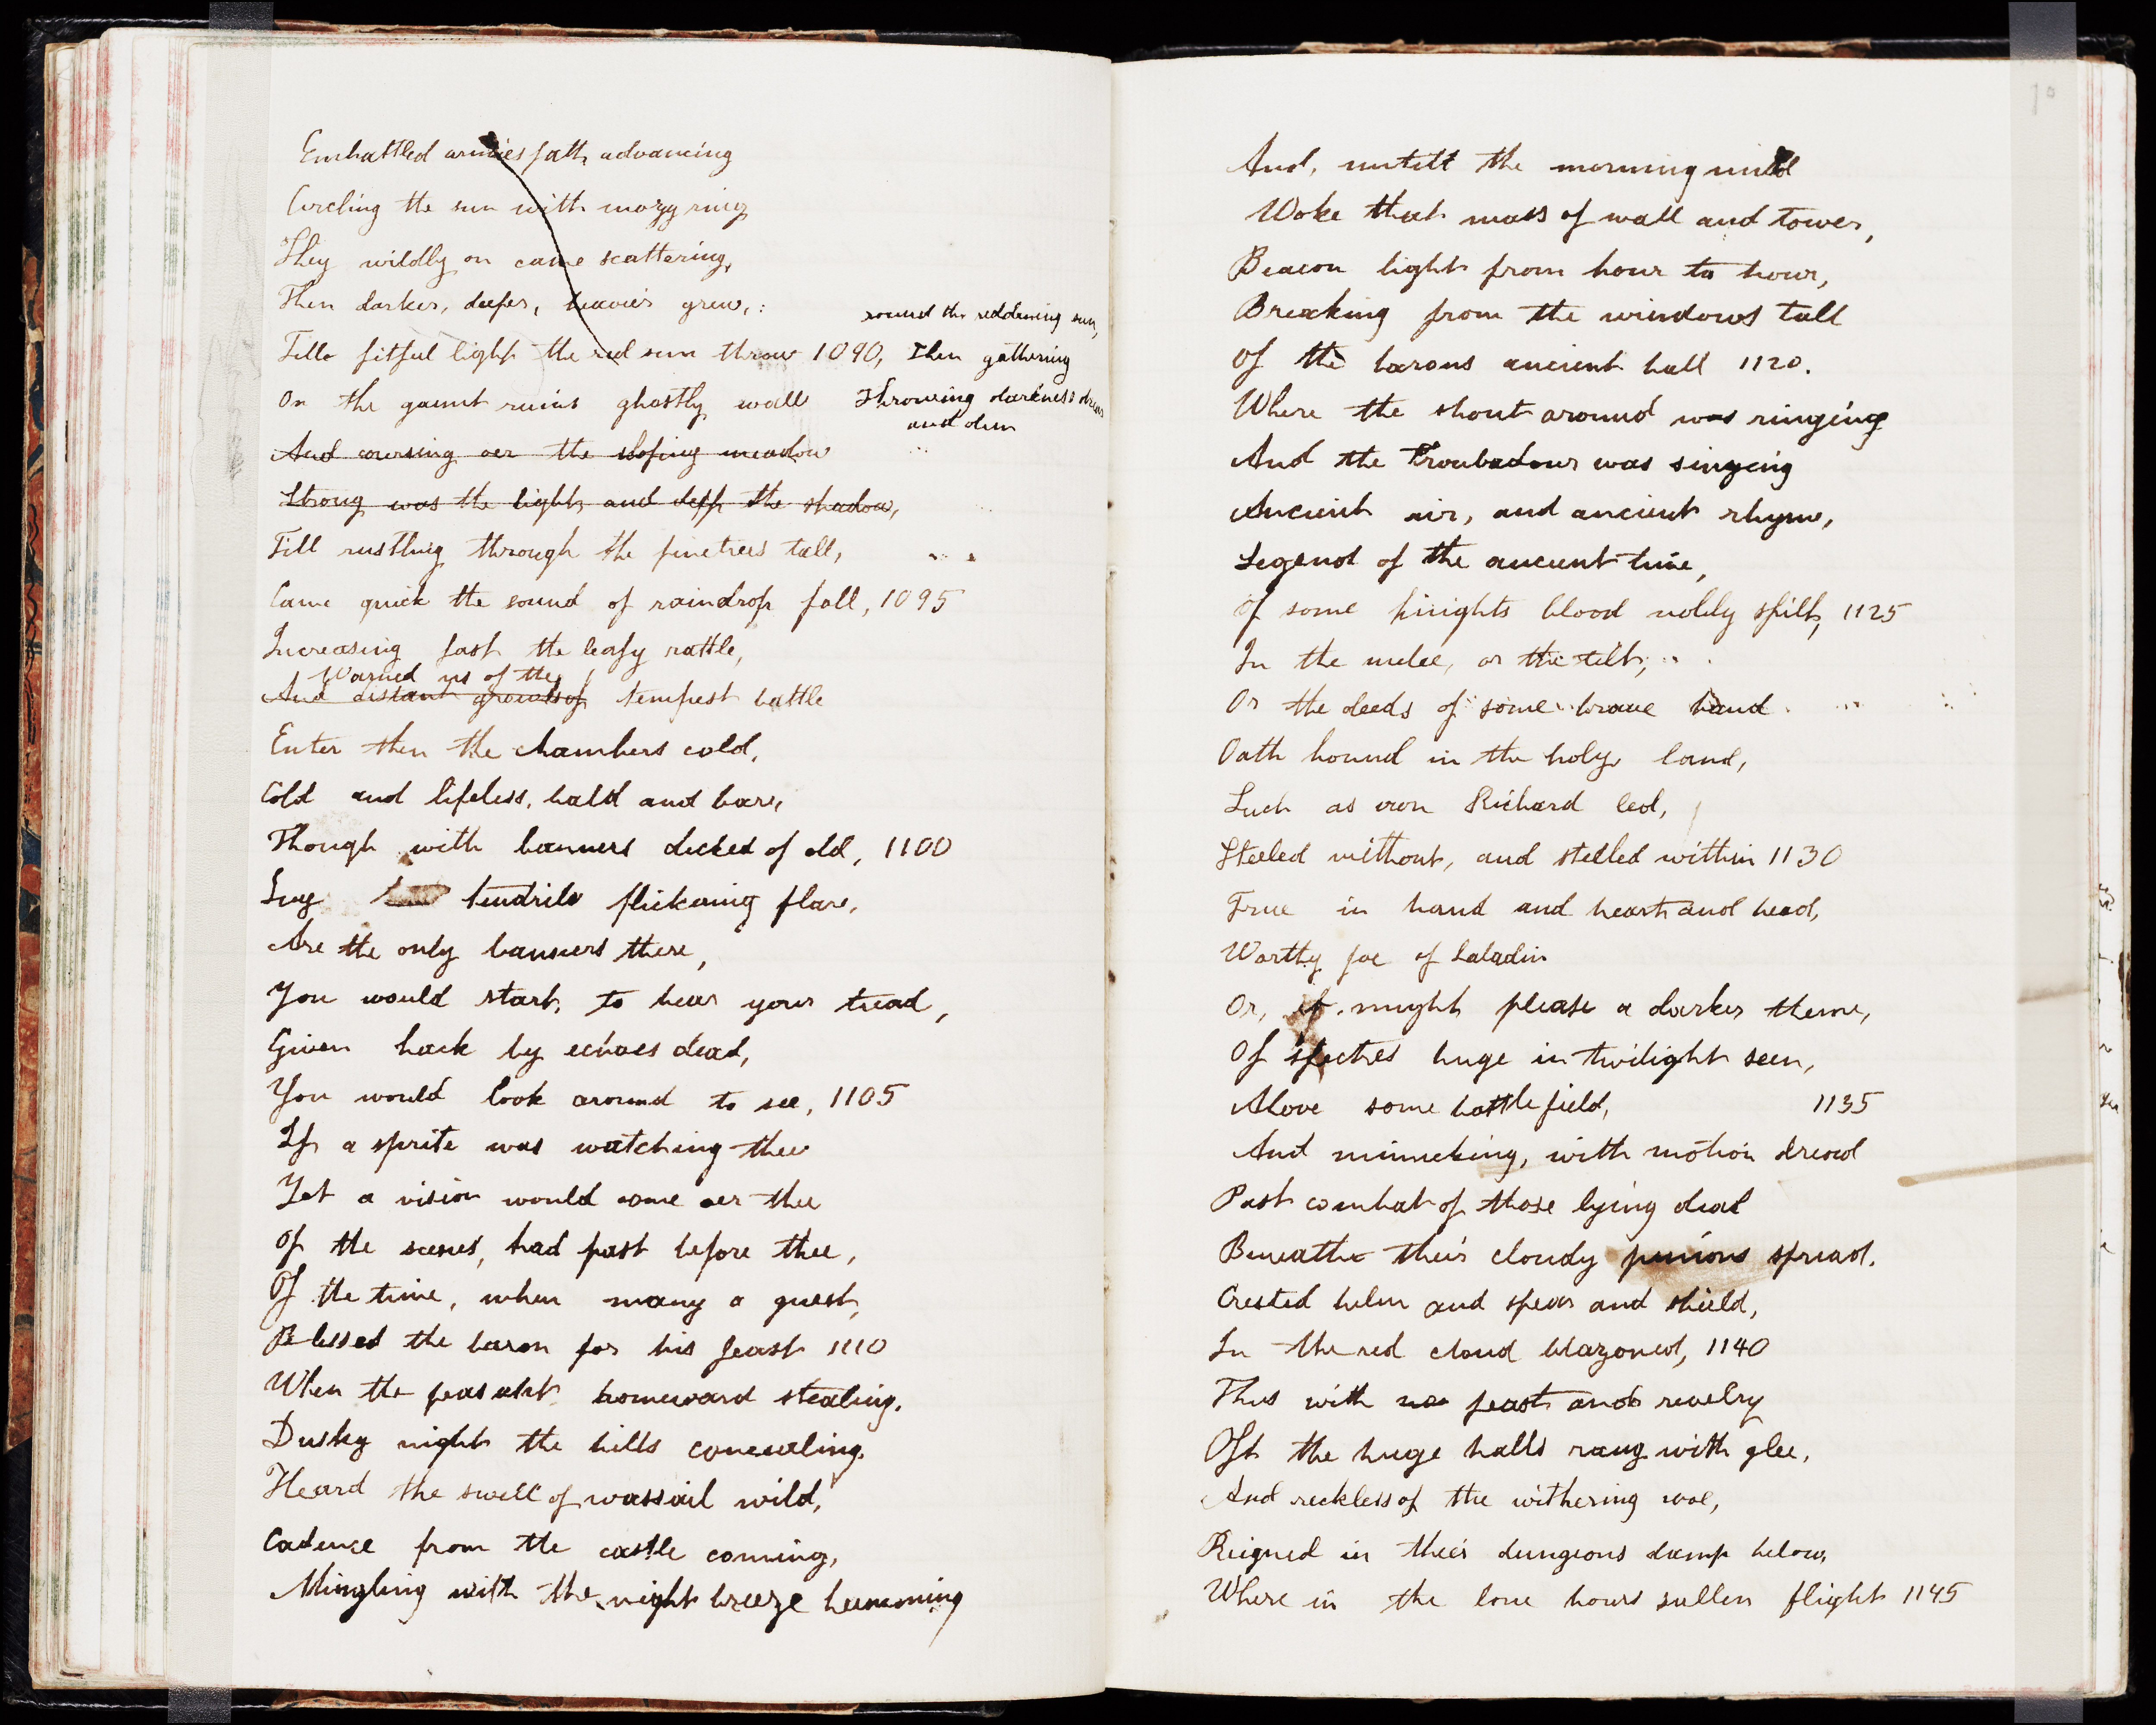 Embattled armies path advancing
Circling the sun with mazy ring
They wildly on came scattering,
Then darker, deeper, heavier grew, :
round the reddening sun,
Till fitful light the red sun threw 1090, Then gathering
On the gaunt ruins ghastly wall Throwing darkness drear
and dun
And coursing oer the sloping meadow
Strong was the light, and deep the shadow,
Till rustling through the pinetrees tall,
Came quick the sound of raindrop fall, 1095
Increasing fast the leafy rattle,
Warned us of the
And distant growls of tempest battle
Enter then the chambers cold,
Cold and lifeless, bald and bare,
Though with banners decked of old, 1100
Ivy tendrils flickering flare,
Are the only banners there,
You would start, to hear your tread,
Given back by echoes dead,
You would look around to see, 1105
If a sprite was watching thee
Yet a vision would come oer thee
Of the scenes, had past before thee,
Of the time, when many a guest,
Blessed the baron for his feast 1110
When the peasant homeward stealing,
Dusky night the hills concealing,
Heard the swell of wassail wild,
Cadence from the castle coming,
Mingling with the night breeze humming
And, untill the morning mild
Woke that mass of wall and tower,
Beacon light from hour to hour,
Breaking from the windows tall
Of the barons ancient hall 1120.
Where the shout around was ringing
And the Troubadour was singing
Ancient air, and ancient rhyme,
Legend of the ancient time,
Of some knights blood nobly spilt, 1125
In the melee, or the tilt,
Or the deeds of some brave band
Oath bound in the holy land,
Such as iron Richard led,
Steeled without, and steeled within 1130
True in hand and heart and head,
Worthy foe of Saladin
Or, it might please a darker theme,
Of spectres huge in twilight seen,
Above some battle field, 1135
And mimicking, with motion dread
Past combat of those lying dead
Beneath their cloudy pinions spread.
Crested helm and spear and shield,
In the red cloud blazoned, 1140
Thus with feast and revelry
Oft the huge halls rang with glee,
And reckless of the withering woe,
Reigned in their dungeons damp below,
Where in the lone hours sullen flight 1145